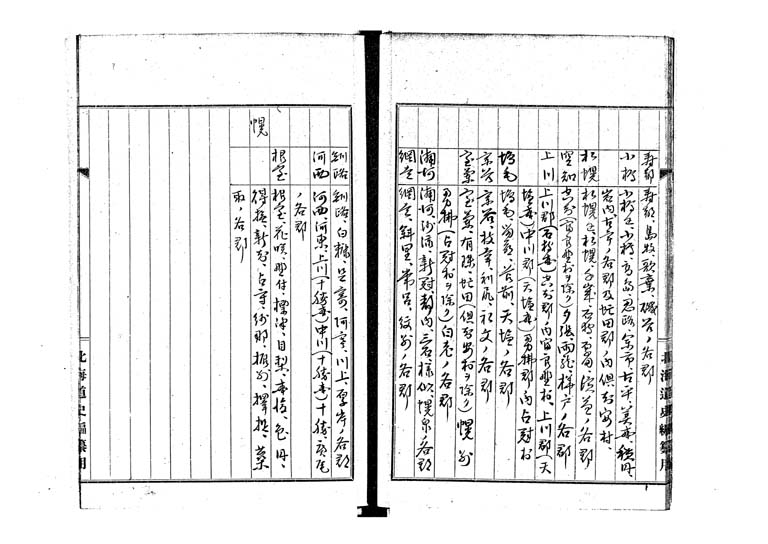 寿都 寿都、島牧、歌棄、磯谷ノ各郡
小樽 小樽区、小樽、高島、忍路、余市、古平、美国、積丹
岩内、古宇ノ各郡及虻田郡ノ内倶知安村、
札幌 札幌区、札幌、千歳、石狩、厚田、浜益ノ各郡
空知 空知(富良野村ヲ除ク)夕張、雨竜、樺戸ノ各郡
上川 上川郡(石狩国)空知郡ノ内富良野村、上川郡(天
塩国)中川郡(天塩国)勇払郡ノ内占冠村
増毛 増毛、留萌、苫前、天塩ノ各郡
宗谷 宗谷、枝幸、利尻、礼文ノ各郡
室蘭 室蘭、有珠、虻田(倶知安村ヲ除ク)幌別
勇払(占冠村ヲ除ク)白老ノ各郡
浦河 浦河、沙流、新冠、静内、三石、様似、幌泉ノ各郡
網走 網走、斜里、常呂、紋別ノ各郡
釧路 釧路、白糠、足寄、阿寒、川上、厚岸ノ各郡
河西 河西、河東、上川(十勝国)中川(十勝国)十勝、広尾
ノ各郡
根室 根室、花咲、野付、標津、目梨、国後、色丹、
幌
得撫、新知、占守、紗那、振別、択捉、蘂
取ノ各郡
北海道史編纂用
北海道史編纂用